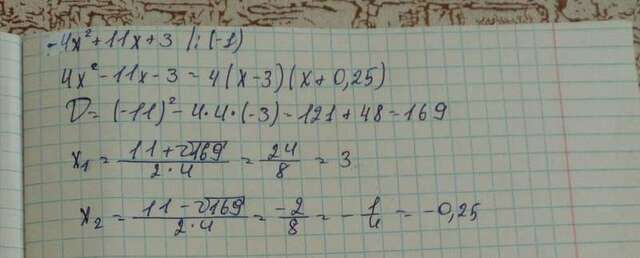 -4x²+11x+3 |:(-1)
4x²-11x-3 = 4(x-3)(x+0,25)
D=(-11)²-4·4·(-3)=121+48=169
x₁ = (11+√169)/(2·4) = 24/8 = 3
x₂ = (11-√169)/(2·4) = -2/8 = -1/4 = -0,25